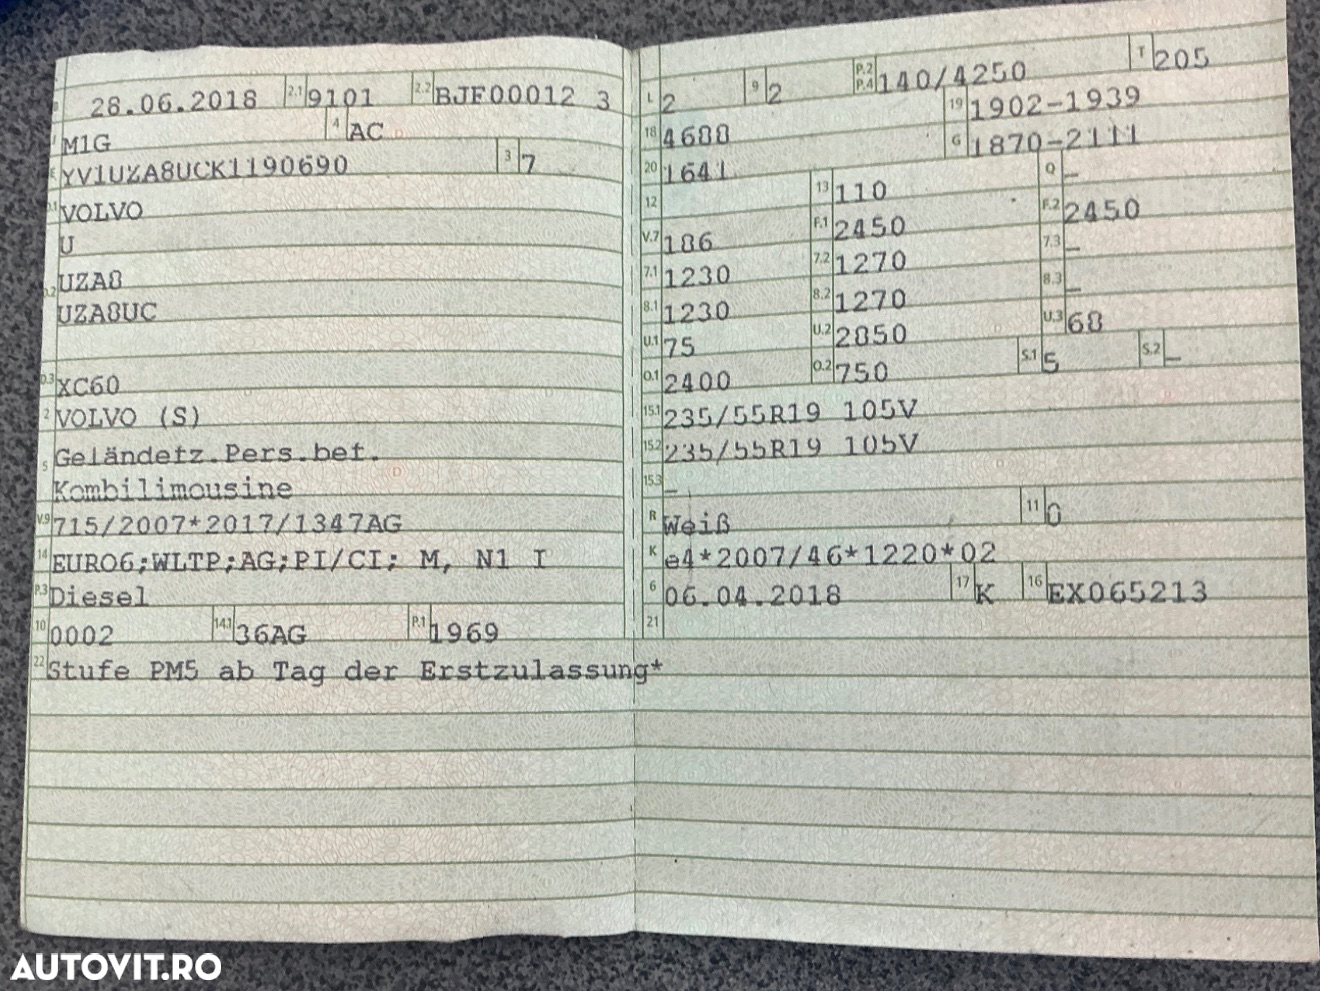 B 28.06.2018 2.1 9101 2.2 BJF00012 3
J M1G 4 AC
E YV1UZA8UCK1190690 3 7
D.1 VOLVO
U
D.2 UZA8
UZA8UC
D.3 XC60
2 VOLVO (S)
5 Geländefz.Pers.bef.
Kombilimousine
V.9 715/2007*2017/1347AG
14 EURO6;WLTP;AG;PI/CI; M, N1 I
P.3 Diesel
10 0002 14.1 36AG P.1 1969
22 Stufe PM5 ab Tag der Erstzulassung*
L 2 9 2 P.2 P.4 140/4250 T 205
18 4688 19 1902-1939
20 1641 G 1870-2111
12 13 110 Q –
V.7 186 F.1 2450 F.2 2450
7.1 1230 7.2 1270 7.3 –
8.1 1230 8.2 1270 8.3 –
U.1 75 U.2 2850 U.3 68
O.1 2400 O.2 750 S.1 5 S.2 –
15.1 235/55R19 105V
15.2 235/55R19 105V
15.3 –
R Weiß 11 0
K e4*2007/46*1220*02
6 06.04.2018 17 K 16 EX065213
21
AUTOVIT.RO